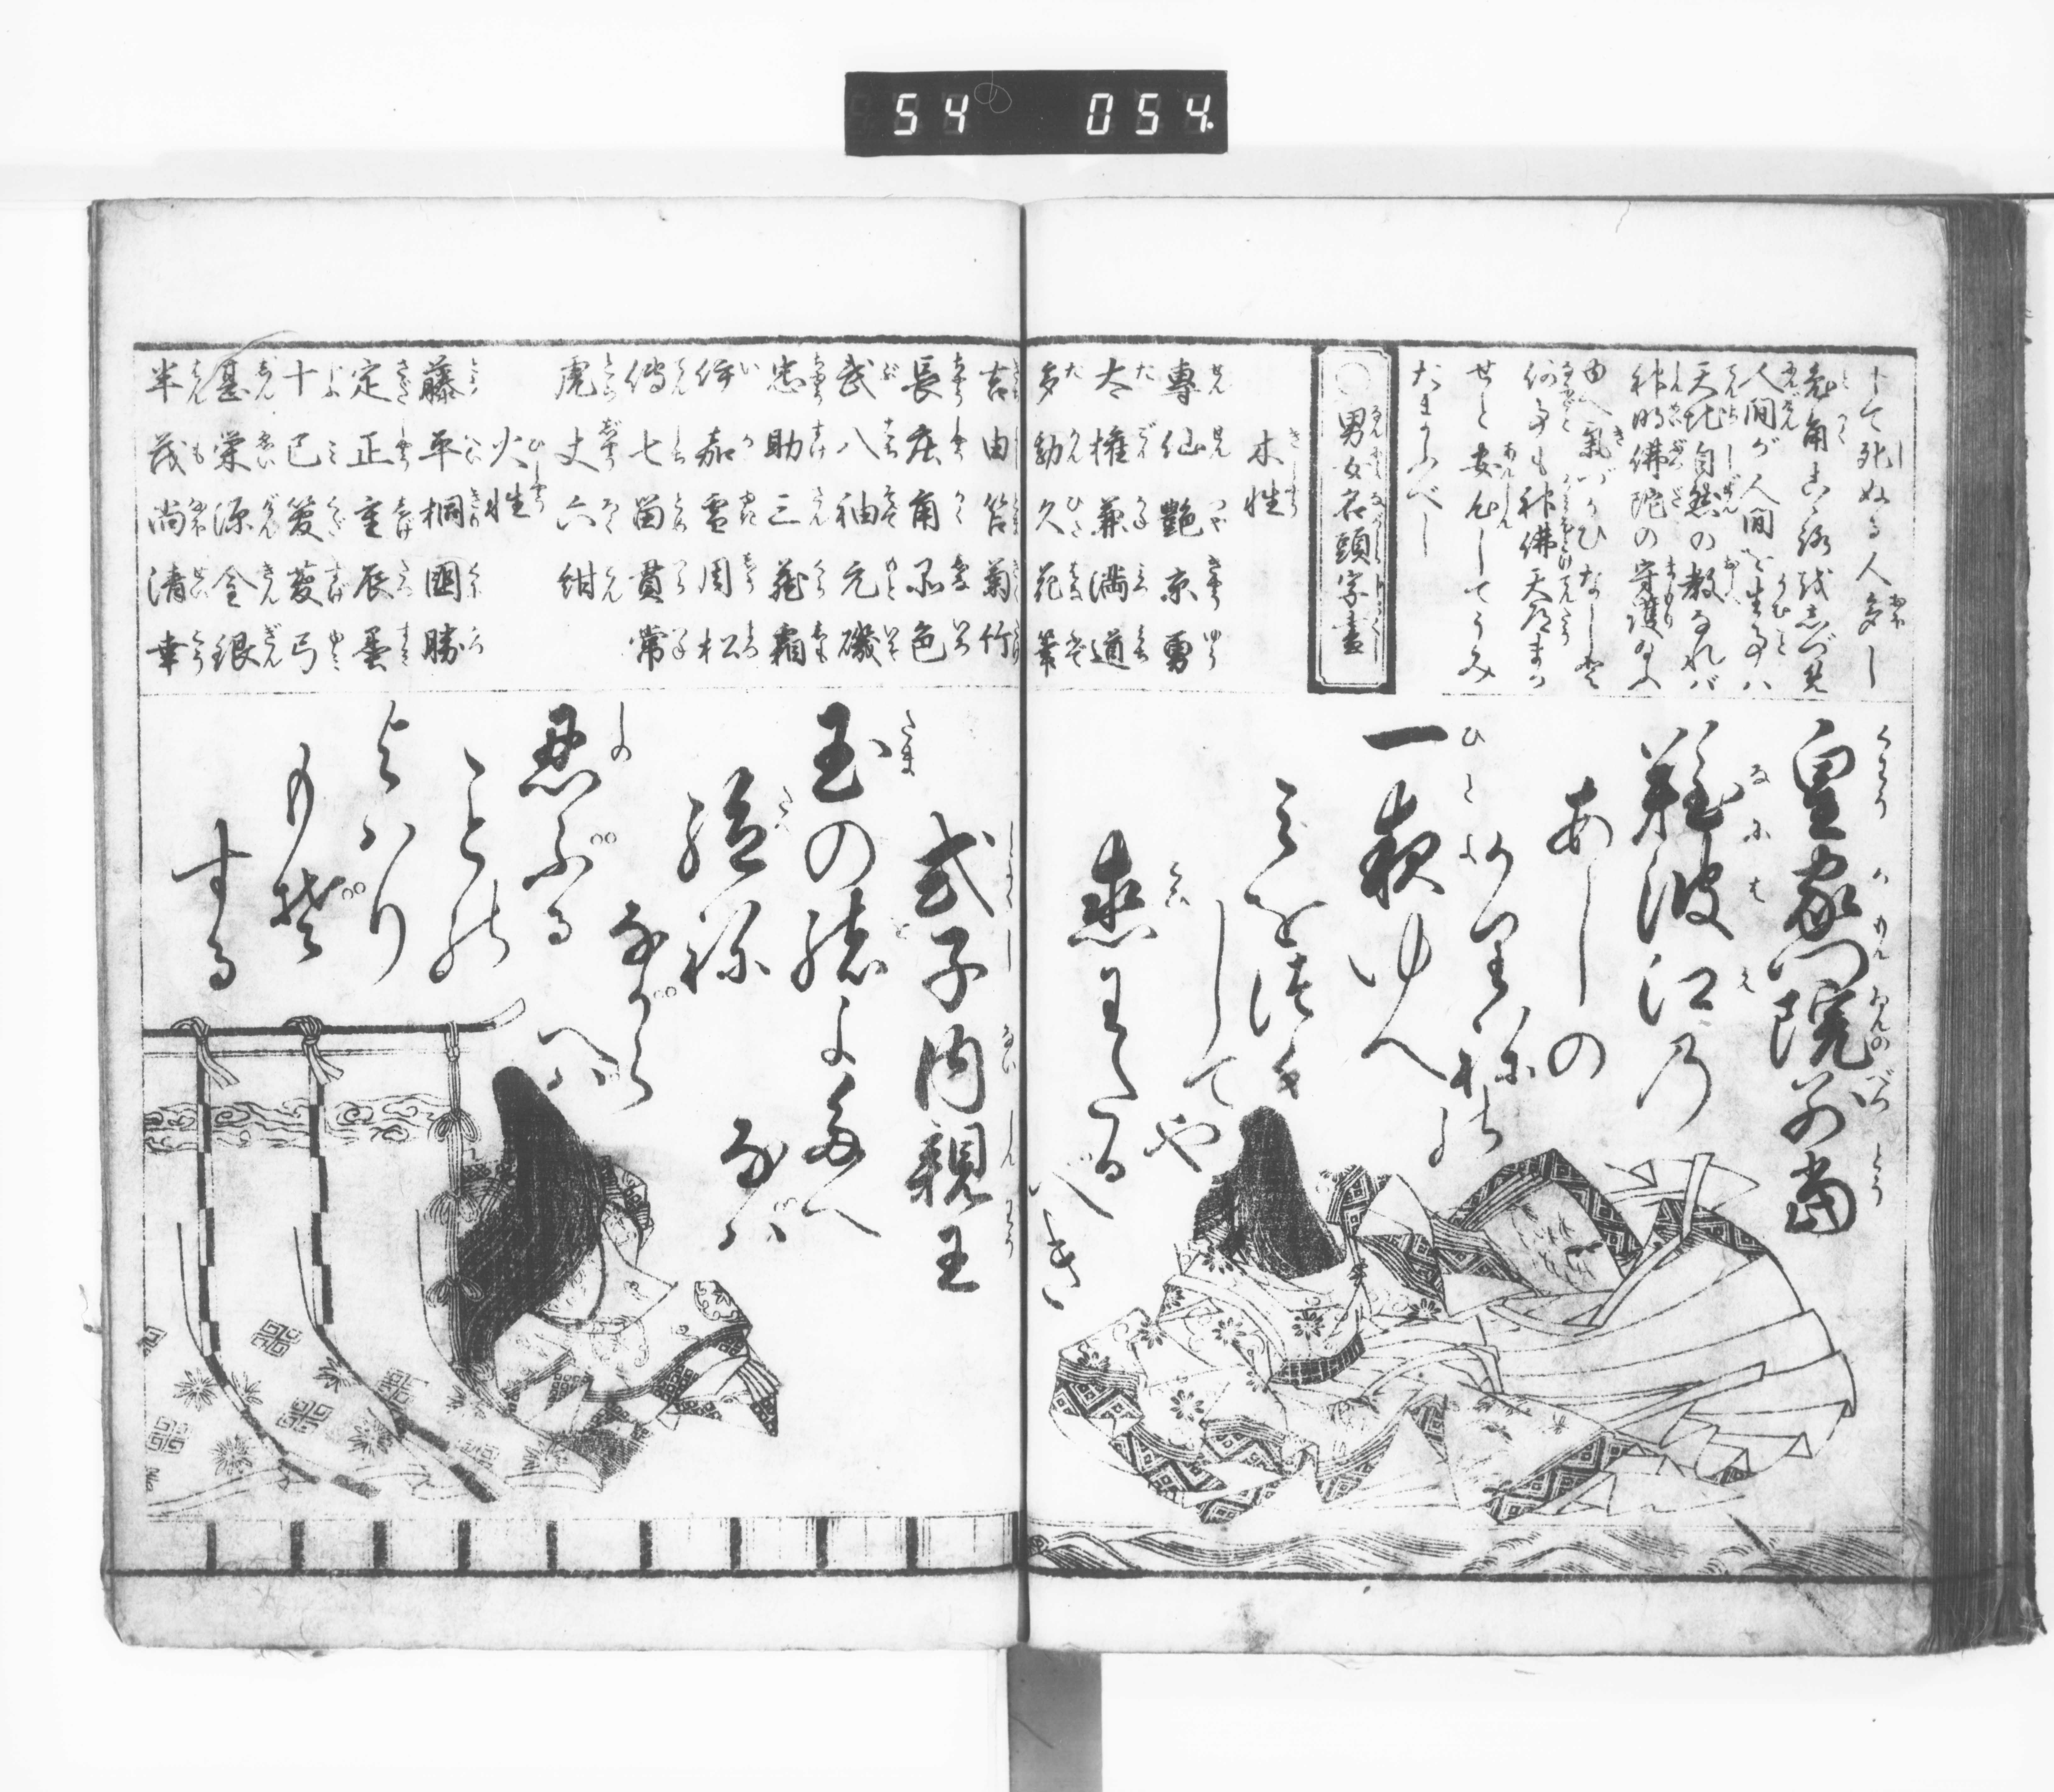 54 054
して死ぬる人多し
兎角其絵
人間が人間を生事ハ
天地自然の教なれバ
神明佛陀の守護給ふ
由へ氣づかひなし
何事も神佛天道まか
せと安心してうみ
たまふべし
○男女名頭字盡
木性
專仙艶京勇
太権兼満道
多勘久花筆
吉由笞菊竹
長庄角品色
武八袖元磯
忠助三蔵霜
伊嘉雪周松
傳七留貫常
虎丈六紺
火性
藤平桐國勝
定正重辰墨
十巳笈菱弓
甚栄源金銀
半茂尚清幸
皇嘉門院別當
難波江乃
あしの
かりねの
一夜ゆへ
みをつくし
してや
恋わたるべき
式子内親王
玉の緒よ
たえ
絶ね
なバ
ながら
へバ
忍ぶる
ことの
よハり
もぞ
する